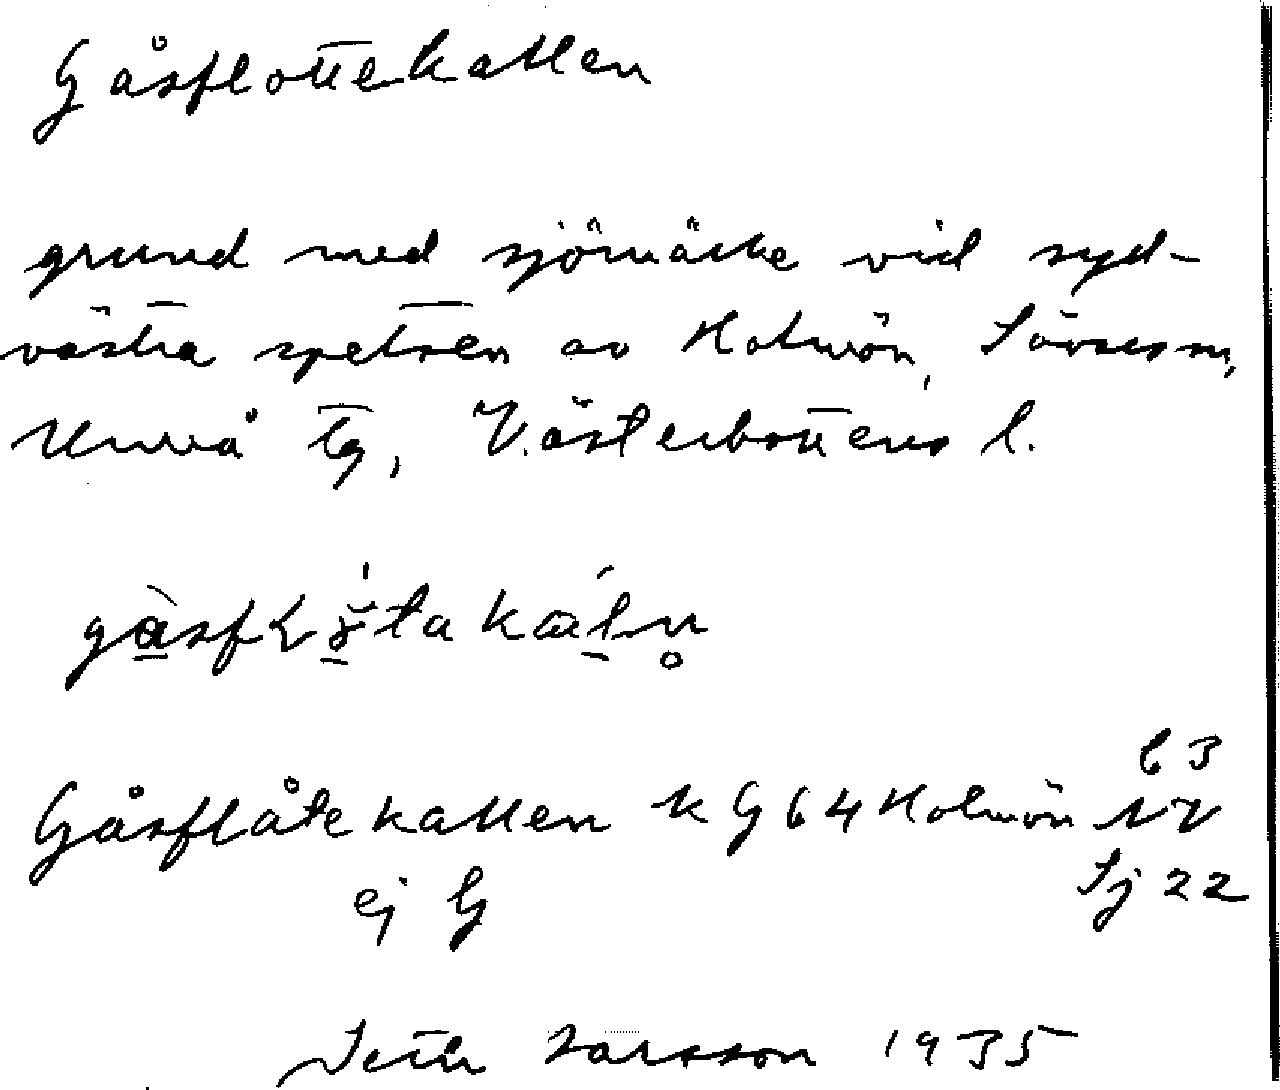 Gåsflottekallen
grund med sjömärke vid syd-
västra spetsen av Holmön, Sävar sn,
Umeå tg, Västerbottens l.
Gåsflåtekallen k G 64 Holmön NV
63
ej G
Sj 22
Larsson 1935